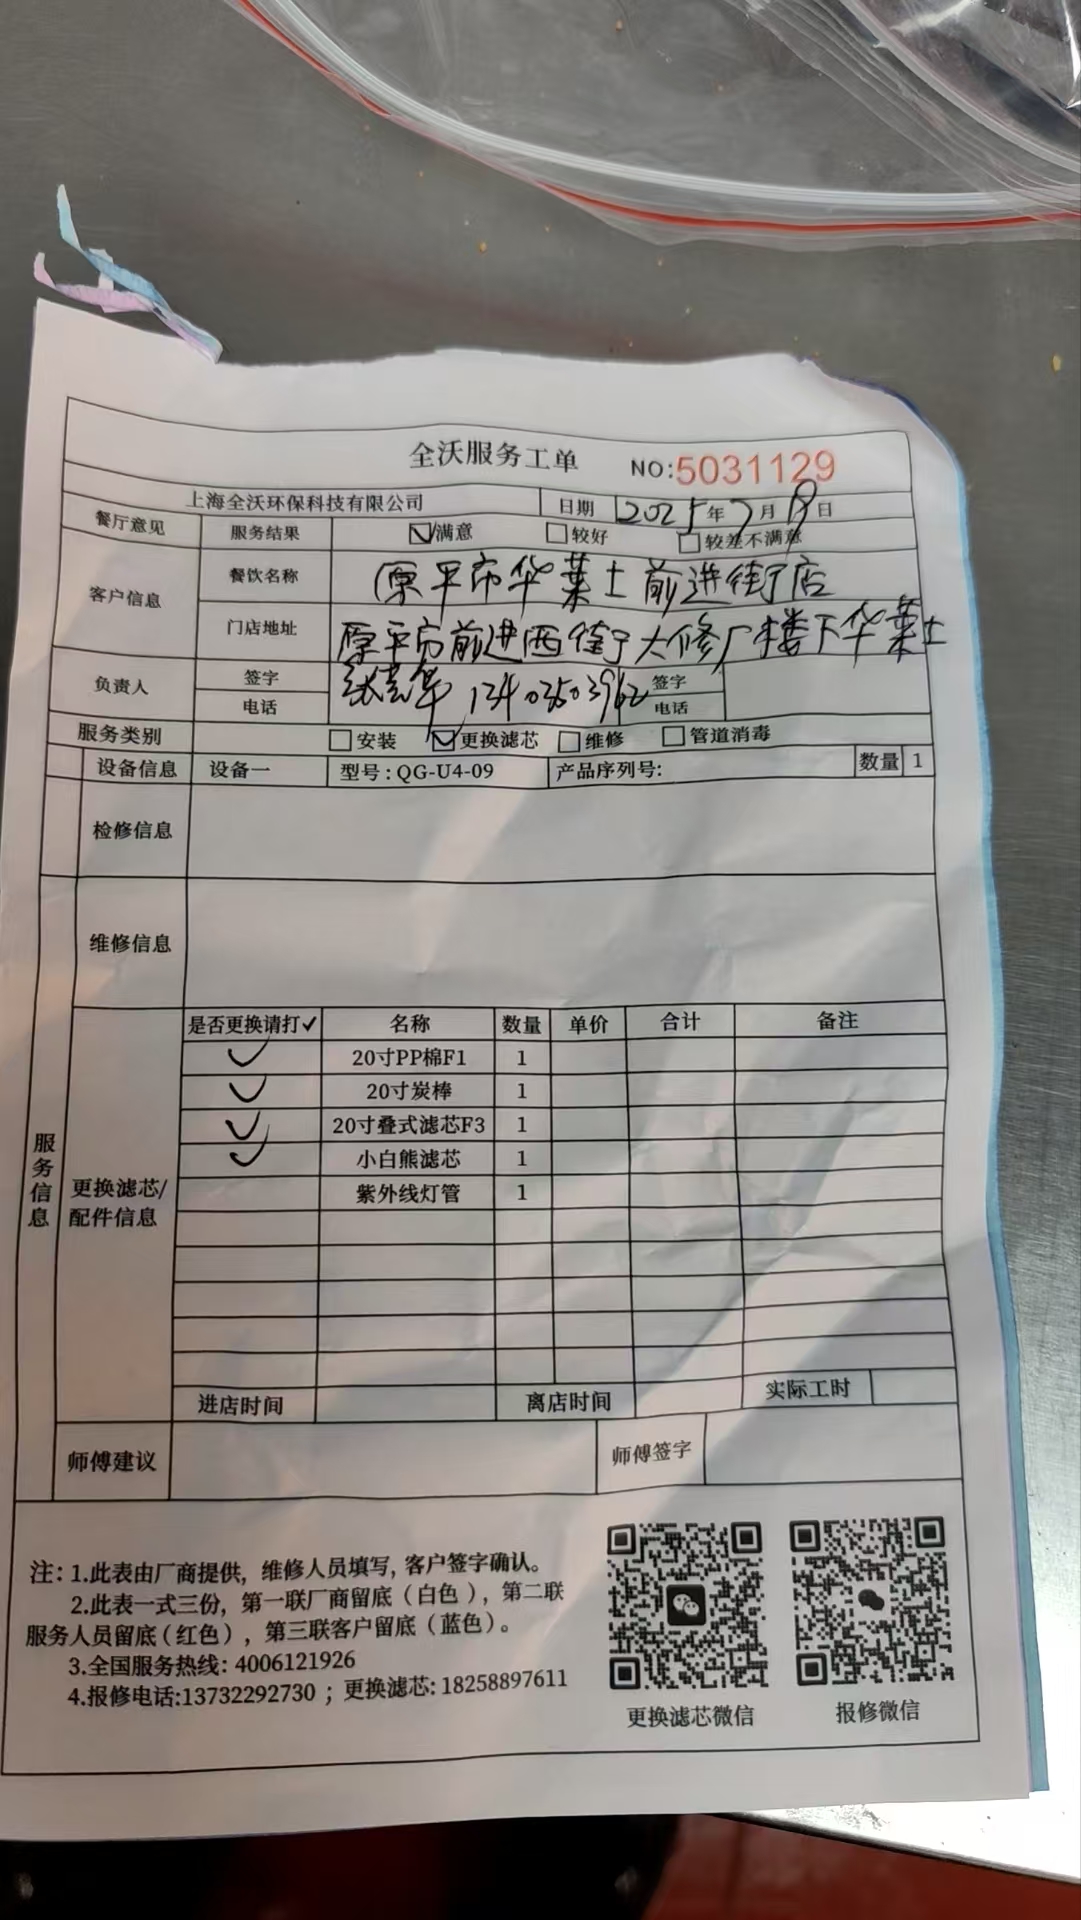 全沃服务工单 NO:5031129
上海全沃环保科技有限公司 日期 2025年7月 日
餐厅意见 服务结果 满意 较好 较差不满意
客户信息 餐饮名称 原平市华莱士前进街店
门店地址 原平市前进西街大修厂楼下华莱士
负责人 签字 签字
电话 电话
服务类别 安装 更换滤芯 维修 管道消毒
设备信息 设备一 型号:QG-U4-09 产品序列号: 数量 1
检修信息
维修信息
服务信息
更换滤芯/
配件信息
是否更换请打✓ 名称 数量 单价 合计 备注
✓ 20寸PP棉F1 1
✓ 20寸炭棒 1
✓ 20寸叠式滤芯F3 1
✓ 小白熊滤芯 1
紫外线灯管 1
进店时间 离店时间 实际工时
师傅建议 师傅签字
注:1.此表由厂商提供,维修人员填写,客户签字确认。
2.此表一式三份,第一联厂商留底(白色),第二联
服务人员留底(红色),第三联客户留底(蓝色)。
3.全国服务热线:4006121926
4.报修电话:13732292730;更换滤芯:18258897611
更换滤芯微信 报修微信